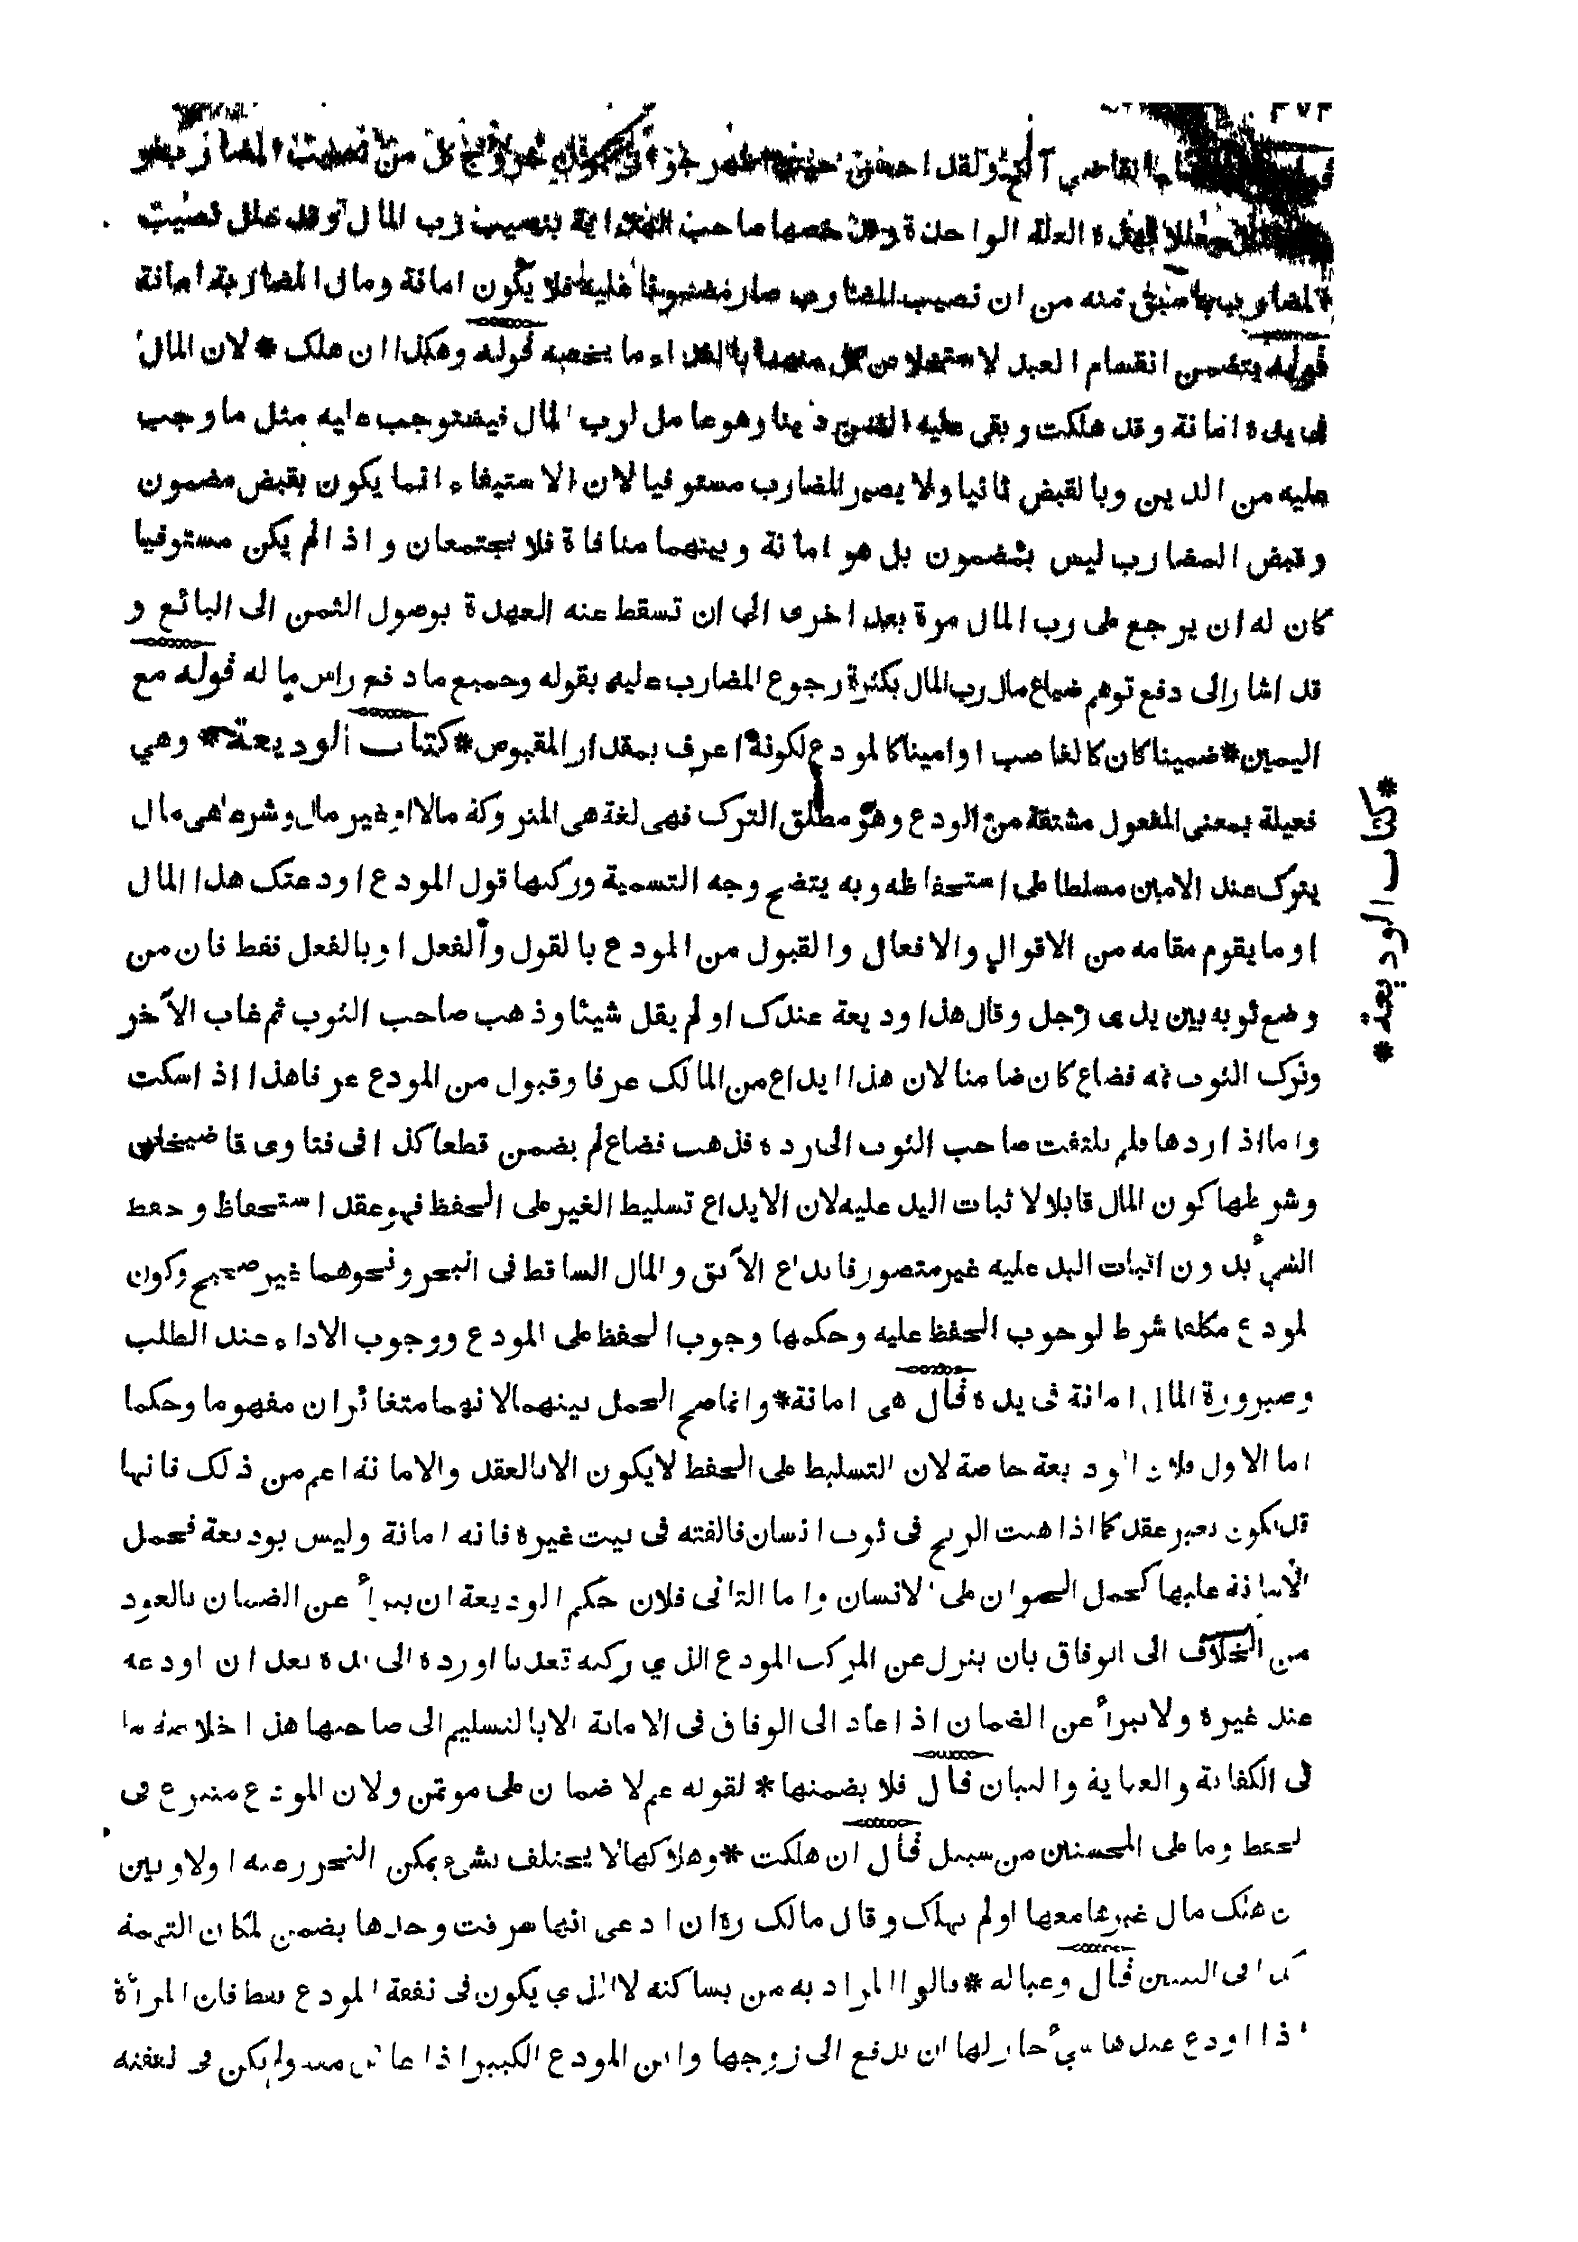 القاضي الخ ولقد احسن
العلة الواحدة وقد خصها صاحب الهداية بنصيب رب المال وقد علل نصيب
المضارب بما سبق منه من ان نصيب المضارب صار مضمونا عليه فلا يكون امانة ومال المضاربة امانة
قوله يتضمن انقسام العبد بالفداء ما يخصه قوله وهكذا ان هلك * لان المال
في يده امانة وقد هلكت وبقي عليه الثمن دينا وهو عامل لرب المال فيستوجب عليه مثل ما وجب
عليه من الدين وبالقبض ثانيا ولا يصير المضارب مستوفيا لان الاستيفاء انما يكون بقبض مضمون
وقبض المضارب ليس بمضمون بل هو امانة وبينهما منافاة فلا يجتمعان واذا لم يكن مستوفيا
كان له ان يرجع على رب المال مرة بعد اخرى الى ان تسقط عنه العهدة بوصول الثمن الى البائع و
قد اشار الى دفع توهم ضياع مال رب المال بكثرة رجوع المضارب عليه بقوله وجميع ما دفع راس ماله قوله مع
اليمين * ضمينا كان كالغاصب او امينا كالمودع لكونه اعرف بمقدار المقبوض * كتاب الوديعة * وهي
فعيلة بمعنى المفعول مشتقة من الودع وهو مطلق الترك فهي لغة هي المتروكة مالا او غير مال وشرعا هي مال
يترك عند الامين مسلطا على استحفاظه وبه يتضح وجه التسمية وركنها قول المودع اودعتك هذا المال
او ما يقوم مقامه من الاقوال والافعال والقبول من المودع بالقول والفعل او بالفعل فقط فان من
وضع ثوبه بين يدي رجل وقال هذا وديعة عندك او لم يقل شيئا وذهب صاحب الثوب ثم غاب الآخر
وترك الثوب ثمه فضاع كان ضامنا لان هذا ايداع من المالك عرفا وقبول من المودع عرفا هذا اذا سكت
واما اذا ردها فلم يلتفت صاحب الثوب الى رده فذهب فضاع لم يضمن قطعا كذا في فتاوى قاضيخان
وشرطها كون المال قابلا لاثبات اليد عليه لان الايداع تسليط الغير على الحفظ فهو عقد استحفاظ وحفظ
الشيء بدون اثبات اليد عليه غير متصور فايداع الآبق والمال الساقط في البحر ونحوهما غير صحيح وكون
المودع مكلفا شرط لوجوب الحفظ عليه وحكمها وجوب الحفظ على المودع ووجوب الاداء عند الطلب
وصيرورة المال امانة في يده قال هي امانة * وانما صح الحمل بينهما لانهما متغائران مفهوما وحكما
اما الاول فلان الوديعة خاصة لان التسليط على الحفظ لا يكون الا بالعقد والامانة اعم من ذلك فانها
قد يكون بغير عقد كما اذا هبت الريح في ثوب انسان فالقته في بيت غيره فانه امانة وليس بوديعة فحمل
الامانة عليها كحمل الحيوان على الانسان واما الثاني فلان حكم الوديعة ان يبرأ عن الضمان بالعود
من الخلاف الى الوفاق بان ينزل عن المركب المودع الذي ركبه تعديا او رده الى يده بعد ان اودعه
عند غيره ولا يبرأ عن الضمان اذا عاد الى الوفاق في الامانة الا بالتسليم الى صاحبها هذا خلاصة ما
في الكفاية والعناية والتبيان قال فلا يضمنها * لقوله عم لا ضمان على موتمن ولان المودع متبرع في
الحفظ وما على المحسنين من سبيل قال ان هلكت * وهلاكها لا يختلف بشيء يمكن التحرز عنه اولا وبين
ان هلك مال غيرها معها او لم يهلك وقال مالك رح ان ادعى انها سرقت وحدها يضمن لمكان التهمة
كذا في التبيين قال وعياله * قالوا المراد به من يساكنه لا الذي يكون في نفقة المودع فقط فان المرأة
اذا اودع عندها شيء جاز لها ان تدفع الى زوجها وابن المودع الكبير اذا عاش معه ولم يكن في نفقته
* كتاب الوديعة *